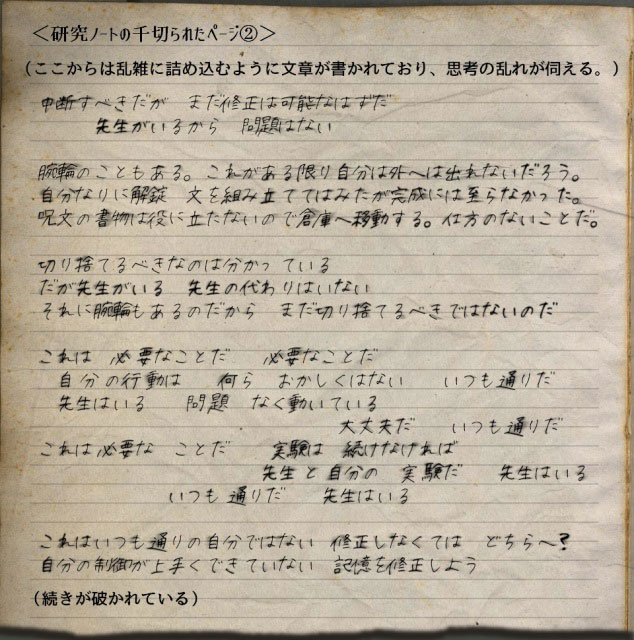 ＜研究ノートの千切られたページ②＞
（ここからは乱雑に詰め込むように文章が書かれており、思考の乱れが伺える。）
中断すべきだが　まだ修正は可能なはずだ
先生がいるから　問題はない
腕輪のこともある。これがある限り自分は外へは出れないだろう。
自分なりに解錠　文を組み立ててはみたが完成には至らなかった。
呪文の書物は役に立たないので倉庫へ移動する。仕方のないことだ。
切り捨てるべきなのは分かっている
だが先生がいる　先生の代わりはいない
それに腕輪もあるのだから　まだ切り捨てるべきではないのだ
これは　必要なことだ　必要なことだ
自分の行動は　何ら　おかしくはない　いつも通りだ
先生はいる　問題　なく動いている
大丈夫だ　いつも通りだ
これは必要な　ことだ　実験は　続けなければ
先生と自分の　実験だ　先生はいる
いつも　通りだ　先生はいる
これはいつも通りの自分ではない　修正しなくては　どちらへ？
自分の制御が上手くできていない　記憶を修正しよう
（続きが破かれている）